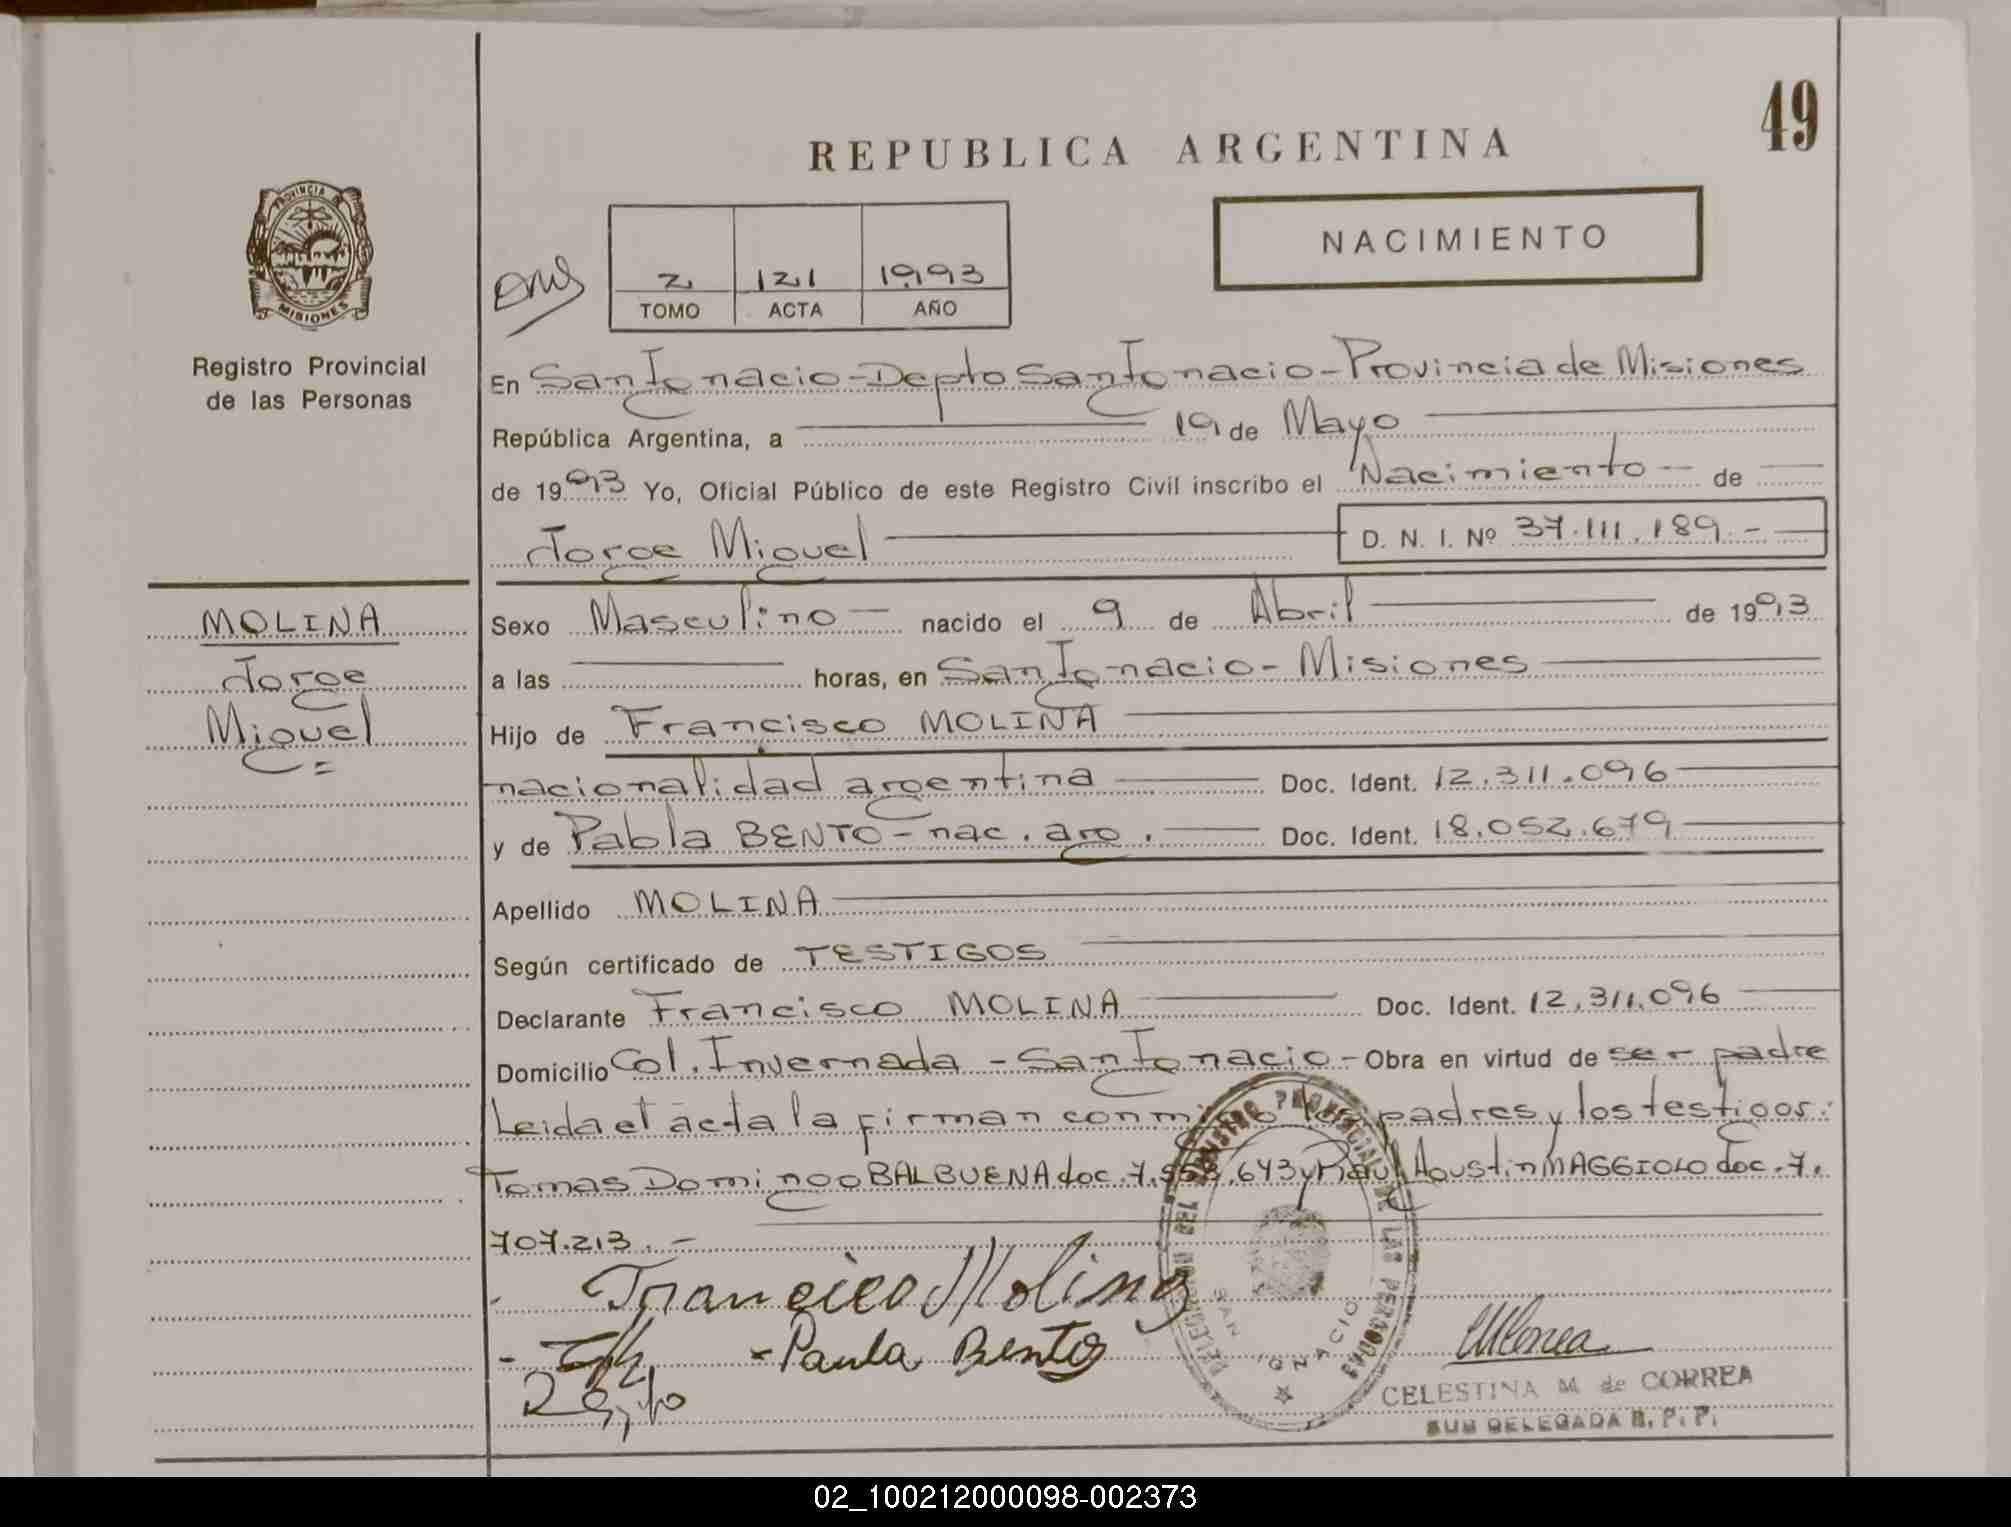 49
REPUBLICA ARGENTINA
NACIMIENTO
PROVINCIA DE
MISIONES
Registro Provincial
de las Personas
2 121 1993
TOMO ACTA AÑO
En San Ignacio - Depto San Ignacio - Provincia de Misiones
República Argentina, a 19 de Mayo
de 1993 Yo, Oficial Público de este Registro Civil inscribo el Nacimiento - de
Jorge Miguel D. N. I. Nº 37.111.189.-
MOLINA
Jorge
Miguel =
Sexo Masculino - nacido el 9 de Abril de 1993
a las horas, en San Ignacio - Misiones
Hijo de Francisco MOLINA
nacionalidad argentina Doc. Ident. 12.311.096
y de Pabla BENTO - nac. arg. Doc. Ident. 18.052.679
Apellido MOLINA
Según certificado de TESTIGOS
Declarante Francisco MOLINA Doc. Ident. 12.311.096
Domicilio Col. Invernada - San Ignacio - Obra en virtud de ser padre
Leida el acta la firman conmigo los padres y los testigos:
Tomas Domingo BALBUENA doc. 7. .643 y Raul Agustin MAGGIOLO doc. 7.
707.213.-
Francisco Molina
- Paula Bento
DELEGACION DEL REGISTRO PROVINCIAL DE LAS PERSONAS
SAN IGNACIO
CELESTINA M de CORREA
SUB DELEGADA R. P. P.
02_100212000098-002373